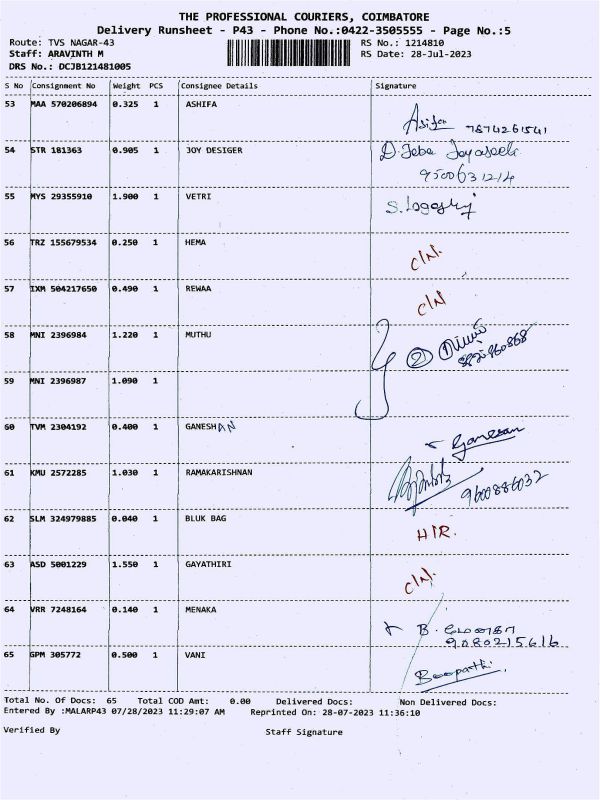 THE PROFESSIONAL COURIERS, COIMBATORE
Delivery Runsheet - P43 - Phone No.:0422-3505555 - Page No.:5
Route: TVS NAGAR-43 RS No.: 1214810
Staff: ARAVINTH M RS Date: 28-Jul-2023
DRS No.: DCJB121481005
S No Consignment No Weight PCS Consignee Details Signature
53 MAA 570206894 0.325 1 ASHIFA
7874261541
54 STR 181363 0.905 1 JOY DESIGER D. Jeba Jeyaseeli
9500631214
55 MYS 29355910 1.900 1 VETRI
56 TRZ 155679534 0.250 1 HEMA C/N.
57 IXM 504217650 0.490 1 REWAA C/N
58 MNI 2396984 1.220 1 MUTHU 2
59 MNI 2396987 1.090 1
60 TVM 2304192 0.400 1 GANESHAN Ganesan
61 KMU 2572285 1.030 1 RAMAKARISHNAN
62 SLM 324979885 0.040 1 BLUK BAG H/R.
63 ASD 5001229 1.550 1 GAYATHIRI C/N.
64 VRR 7248164 0.140 1 MENAKA B.
9080215616
65 GPM 305772 0.500 1 VANI Boopathi.
Total No. Of Docs: 65 Total COD Amt: 0.00 Delivered Docs: Non Delivered Docs:
Entered By :MALARP43 07/28/2023 11:29:07 AM Reprinted On: 28-07-2023 11:36:10
Verified By Staff Signature